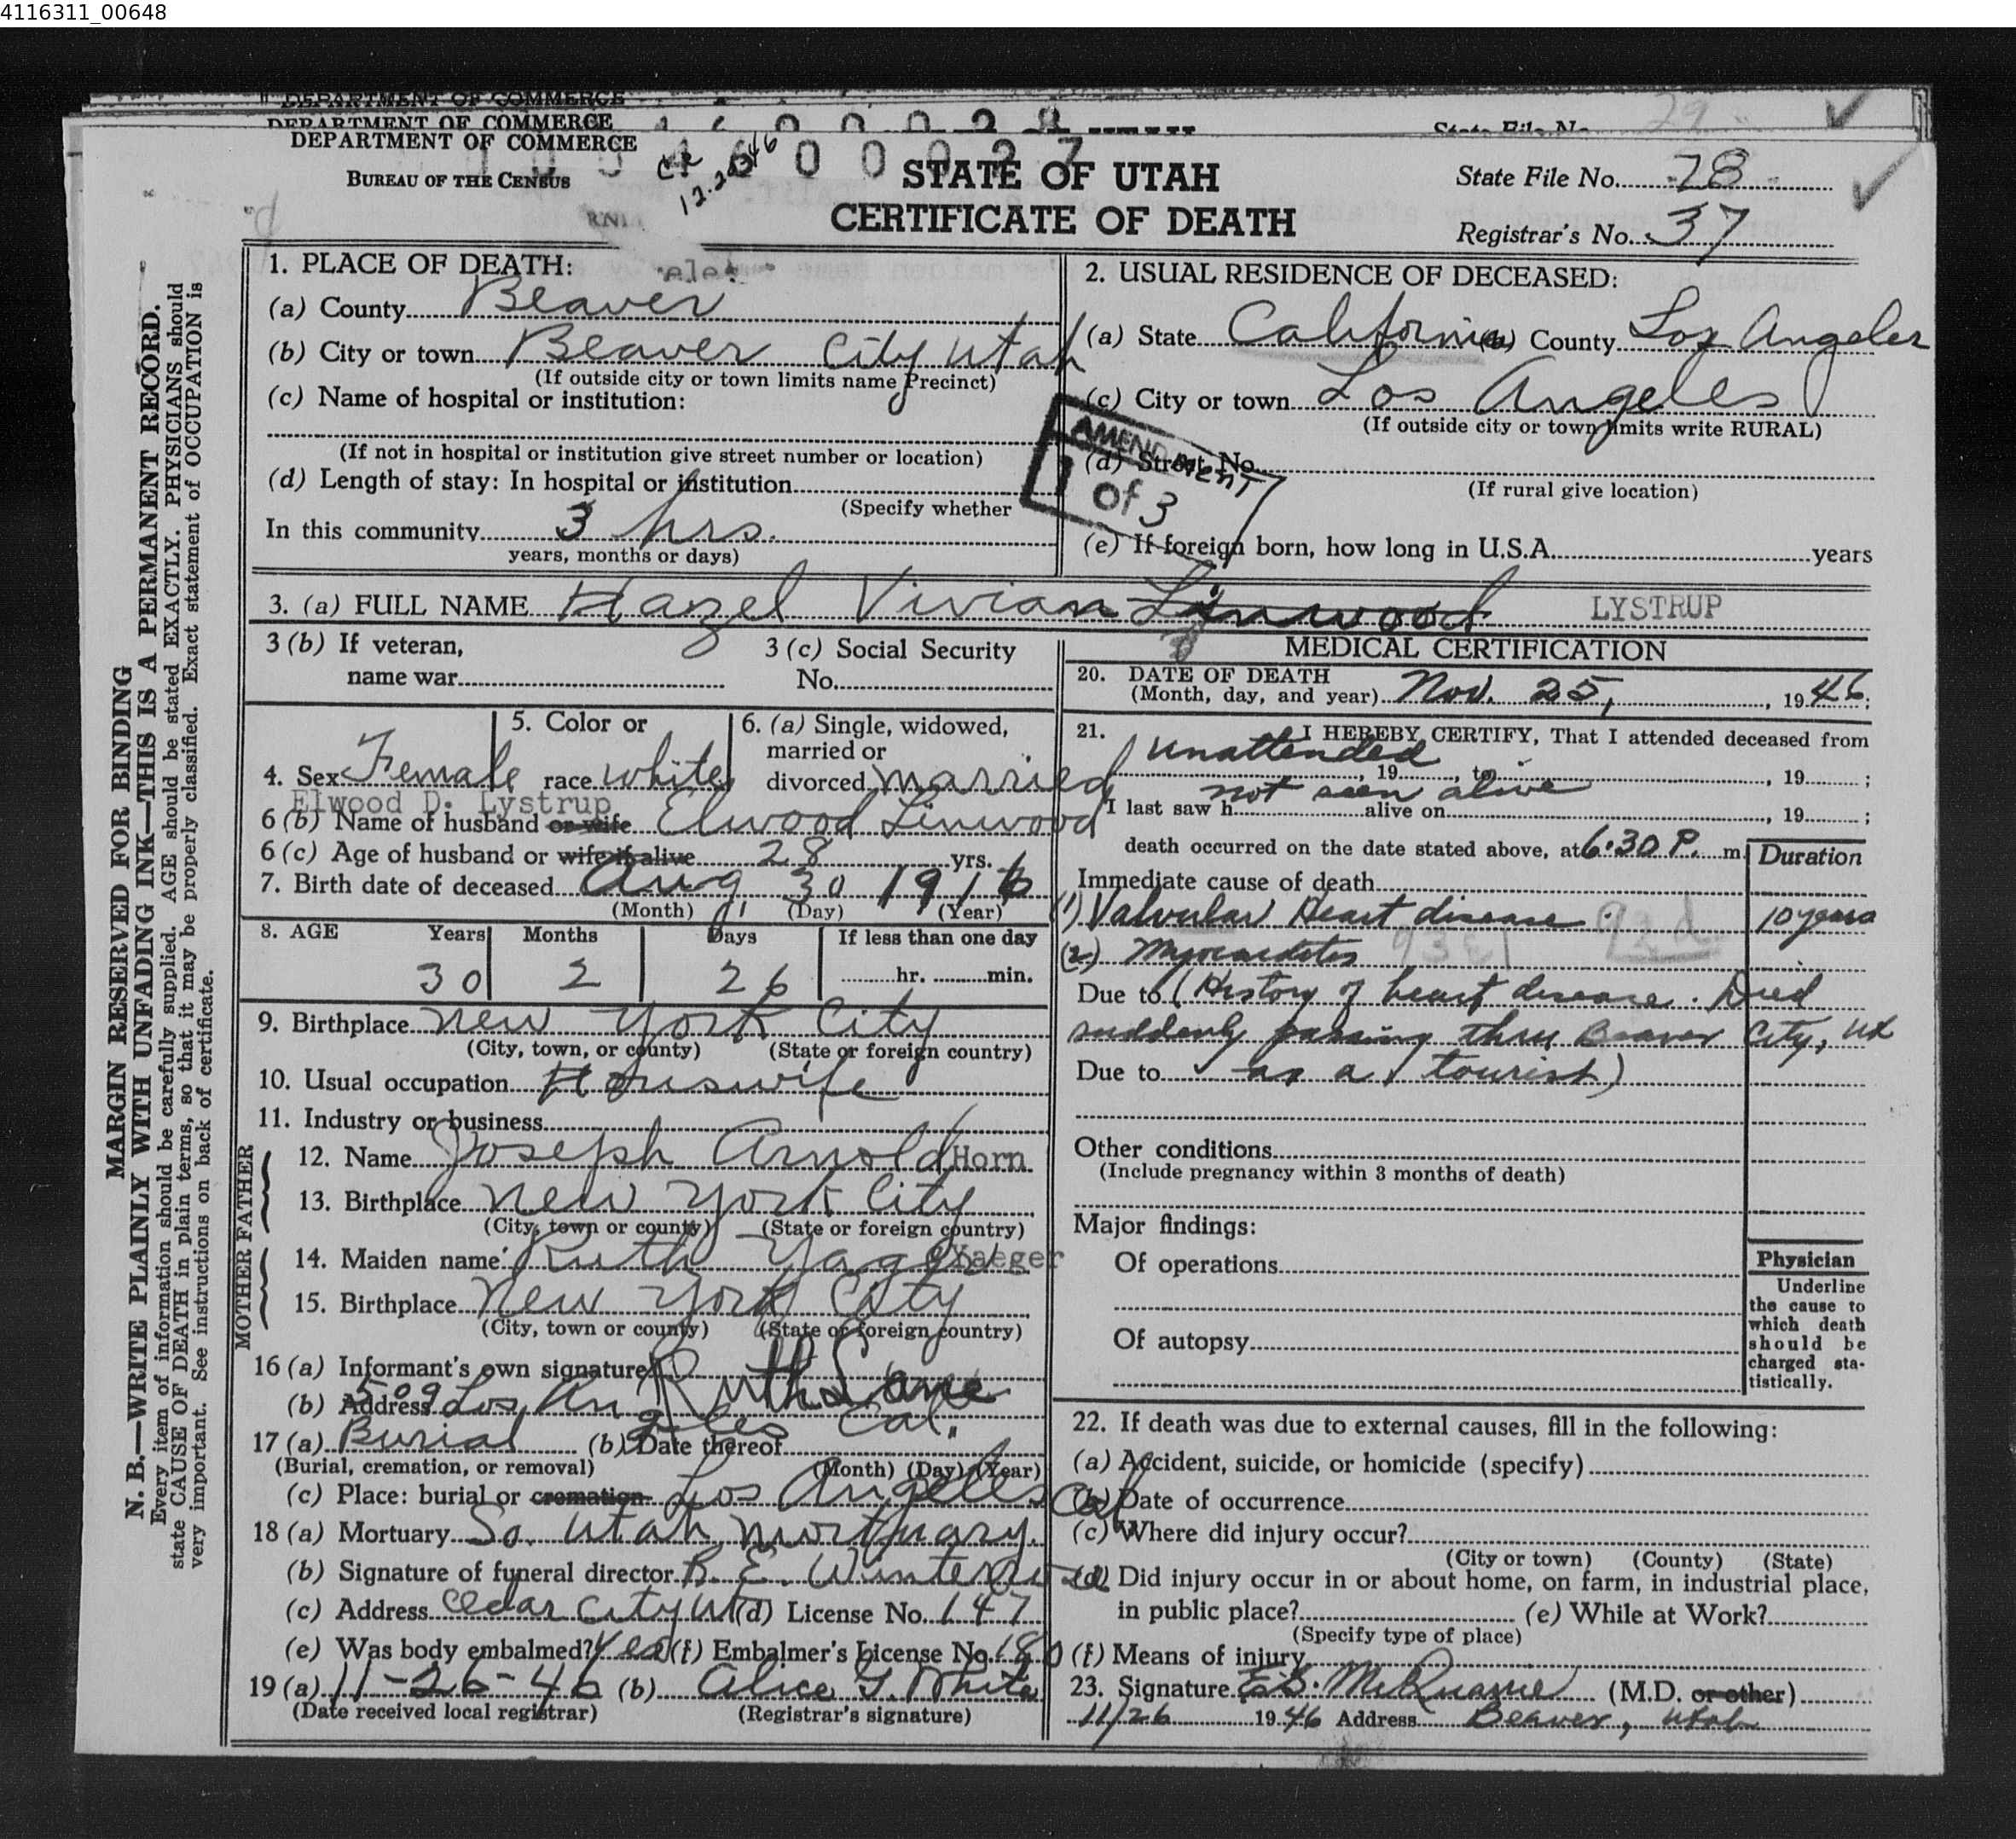 4116311_00648
DEPARTMENT OF COMMERCE
DEPARTMENT OF COMMERCE
State File No. 29
DEPARTMENT OF COMMERCE
BUREAU OF THE CENSUS
STATE OF UTAH
CERTIFICATE OF DEATH
State File No. 78
Registrar's No. 37
MARGIN RESERVED FOR BINDING
N. B.—WRITE PLAINLY WITH UNFADING INK—THIS IS A PERMANENT RECORD.
Every item of information should be carefully supplied. AGE should be stated EXACTLY. PHYSICIANS should
state CAUSE OF DEATH in plain terms, so that it may be properly classified. Exact statement of OCCUPATION is
very important. See instructions on back of certificate.
1. PLACE OF DEATH:
(a) County Beaver
(b) City or town Beaver City Utah
(If outside city or town limits name Precinct)
(c) Name of hospital or institution:
(If not in hospital or institution give street number or location)
(d) Length of stay: In hospital or institution
(Specify whether
In this community 3 hrs.
years, months or days)
2. USUAL RESIDENCE OF DECEASED:
(a) State California (b) County Los Angeles
(c) City or town Los Angeles
(If outside city or town limits write RURAL)
AMENDMENT
1 of 3
(d) Street No.
(If rural give location)
(e) If foreign born, how long in U.S.A. years
3. (a) FULL NAME Hazel Vivian Linwood LYSTRUP
3 (b) If veteran,
name war
3 (c) Social Security
No.
4. Sex Female
5. Color or
race white
6. (a) Single, widowed,
married or
divorced married
Elwood D. Lystrup
6 (b) Name of husband or wife Elwood Linwood
6 (c) Age of husband or wife if alive 28 yrs.
7. Birth date of deceased Aug 30 1916
(Month) (Day) (Year)
8. AGE Years Months Days If less than one day
30 2 26 hr. min.
9. Birthplace New York City
(City, town, or county) (State or foreign country)
10. Usual occupation Houswife
11. Industry or business
FATHER
12. Name Joseph Arnold Horn
13. Birthplace New York City
(City, town or county) (State or foreign country)
MOTHER
14. Maiden name Ruth Yager Yaeger
15. Birthplace New York City
(City, town or county) (State or foreign country)
16 (a) Informant's own signature Ruth Lane
(b) Address 509 Los Angeles Cal.
17 (a) Burial (b) Date thereof
(Burial, cremation, or removal) (Month) (Day) (Year)
(c) Place: burial or cremation Los Angeles Cal
18 (a) Mortuary So. Utah Mortuary.
(b) Signature of funeral director R. E. Winterrose
(c) Address Cedar City Ut (d) License No. 147
(e) Was body embalmed? Yes (f) Embalmer's License No. 180
19 (a) 11-26-46 (b) Alice G. White
(Date received local registrar) (Registrar's signature)
MEDICAL CERTIFICATION
20. DATE OF DEATH
(Month, day, and year) Nov. 25, , 1946;
21. I HEREBY CERTIFY, That I attended deceased from
unattended , 19 , to , 19 ;
not seen alive
I last saw h alive on , 19 ;
death occurred on the date stated above, at 6:30 P. m.
Duration
Immediate cause of death
(1) Valvular Heart disease. 10 years
(2) Myocarditis 93E1 92d
Due to (History of heart disease. Died
suddenly passing thru Beaver City, Ut
Due to as a tourist)
Other conditions
(Include pregnancy within 3 months of death)
Major findings:
Of operations
Of autopsy
Physician
Underline
the cause to
which death
should be
charged sta-
tistically.
22. If death was due to external causes, fill in the following:
(a) Accident, suicide, or homicide (specify)
(b) Date of occurrence
(c) Where did injury occur?
(City or town) (County) (State)
(d) Did injury occur in or about home, on farm, in industrial place,
in public place? (e) While at Work?
(Specify type of place)
(f) Means of injury
23. Signature (M.D. or other)
11/26 1946 Address Beaver, Utah